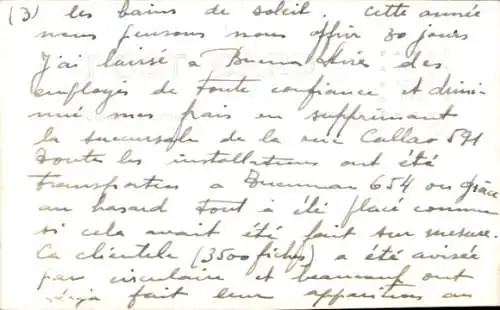 (3) les bains de soleil. Cette année
nous pensons nous offrir 30 jours
J'ai laissé a Buenos Aires des
employés de toute confiance et dimi-
nué mes frais en supprimant
la succursale de la rue Callao 591
Toutes les installations ont été
transportées a 654 ou grâce
au hasard tout a été placé comme
si cela avait été fait sur mesure.
La clientele (3500 fiches) a été avisée
par circulaire et beaucoup ont
déjà fait leur apparition au